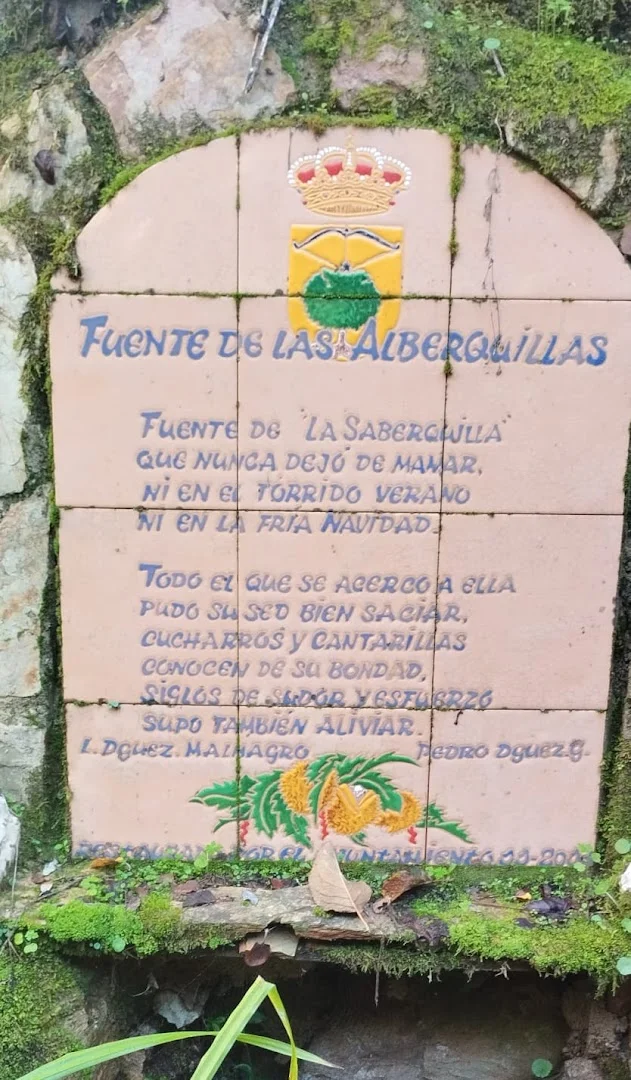 FUENTE DE LAS ALBERQUILLAS
FUENTE DE "LA SABERQUILLA"
QUE NUNCA DEJÓ DE MANAR,
NI EN EL TÓRRIDO VERANO
NI EN LA FRÍA NAVIDAD.
TODO EL QUE SE ACERCO A ELLA
PUDO SU SED BIEN SACIAR,
CUCHARROS Y CANTARILLAS
CONOCEN DE SU BONDAD,
SIGLOS DE SUDOR Y ESFUERZO
SUPO TAMBIÉN ALIVIAR.
L. DGUEZ. MALMAGRO PEDRO DGUEZ.G.
POR EL AYUNTAMIENTO